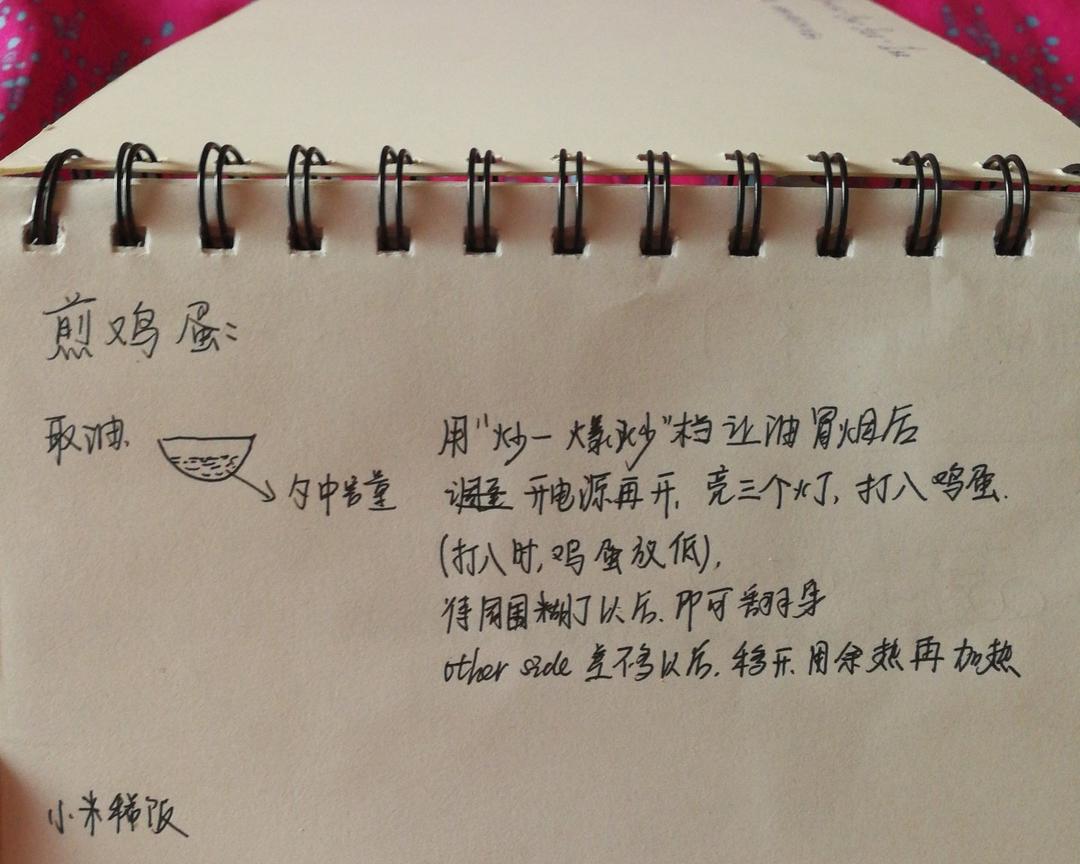 煎鸡蛋:
取油.
勺中容量
用"炒一爆炒"档让油冒烟后
开电源再开, 亮三个灯, 打入鸡蛋.
(打入时, 鸡蛋放低),
待周围糊了以后. 即可翻身
other side 差不多以后. 移开. 用余热再加热
小米稀饭